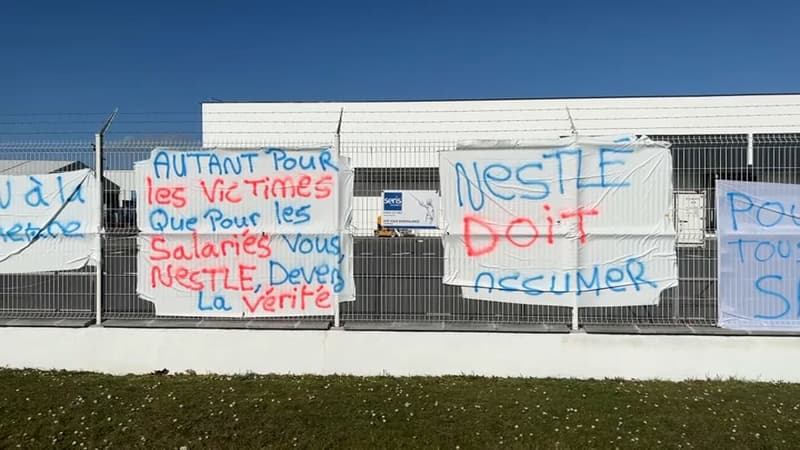 à la
AUTANT POUR
les VICTIMES
Que Pour les
Salariés vous,
NESTLE, Devez
La vérité
seris
NESTLÉ
DOIT
assumer
TOU